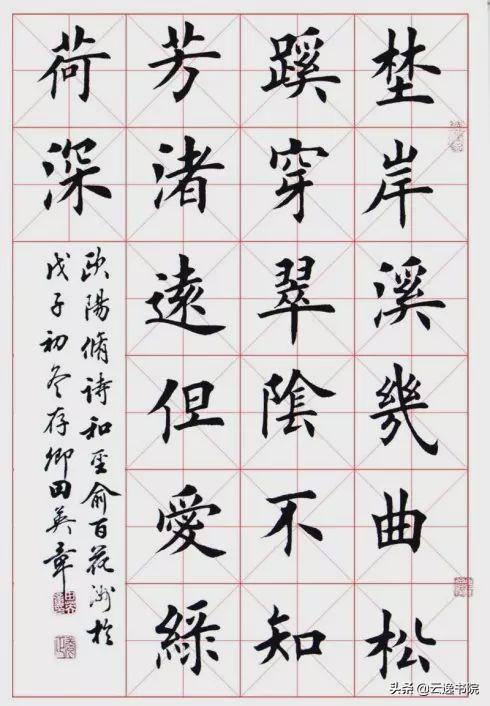 埜岸溪幾曲松
蹊穿翠陰不知
芳渚遠但愛綠
荷深
歐陽脩詩和聖俞百花洲於
戊子初冬存卿田英章
头条 @云逸书院